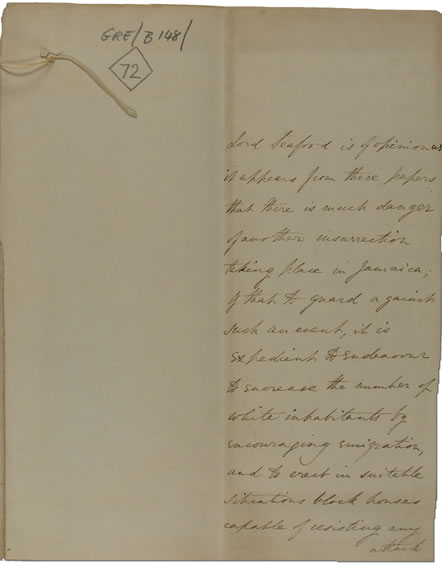 GRE/B148/
72
Lord Seaford is of opinion as
it appears from these papers
that there is much danger
of another insurrection
taking place in Jamaica;
& that to guard against
such an event, it is
expedient to endeavour
to encrease the number of
white inhabitants by
encouraging emigration,
and to erect in suitable
situations block houses
capable of resisting any
attack